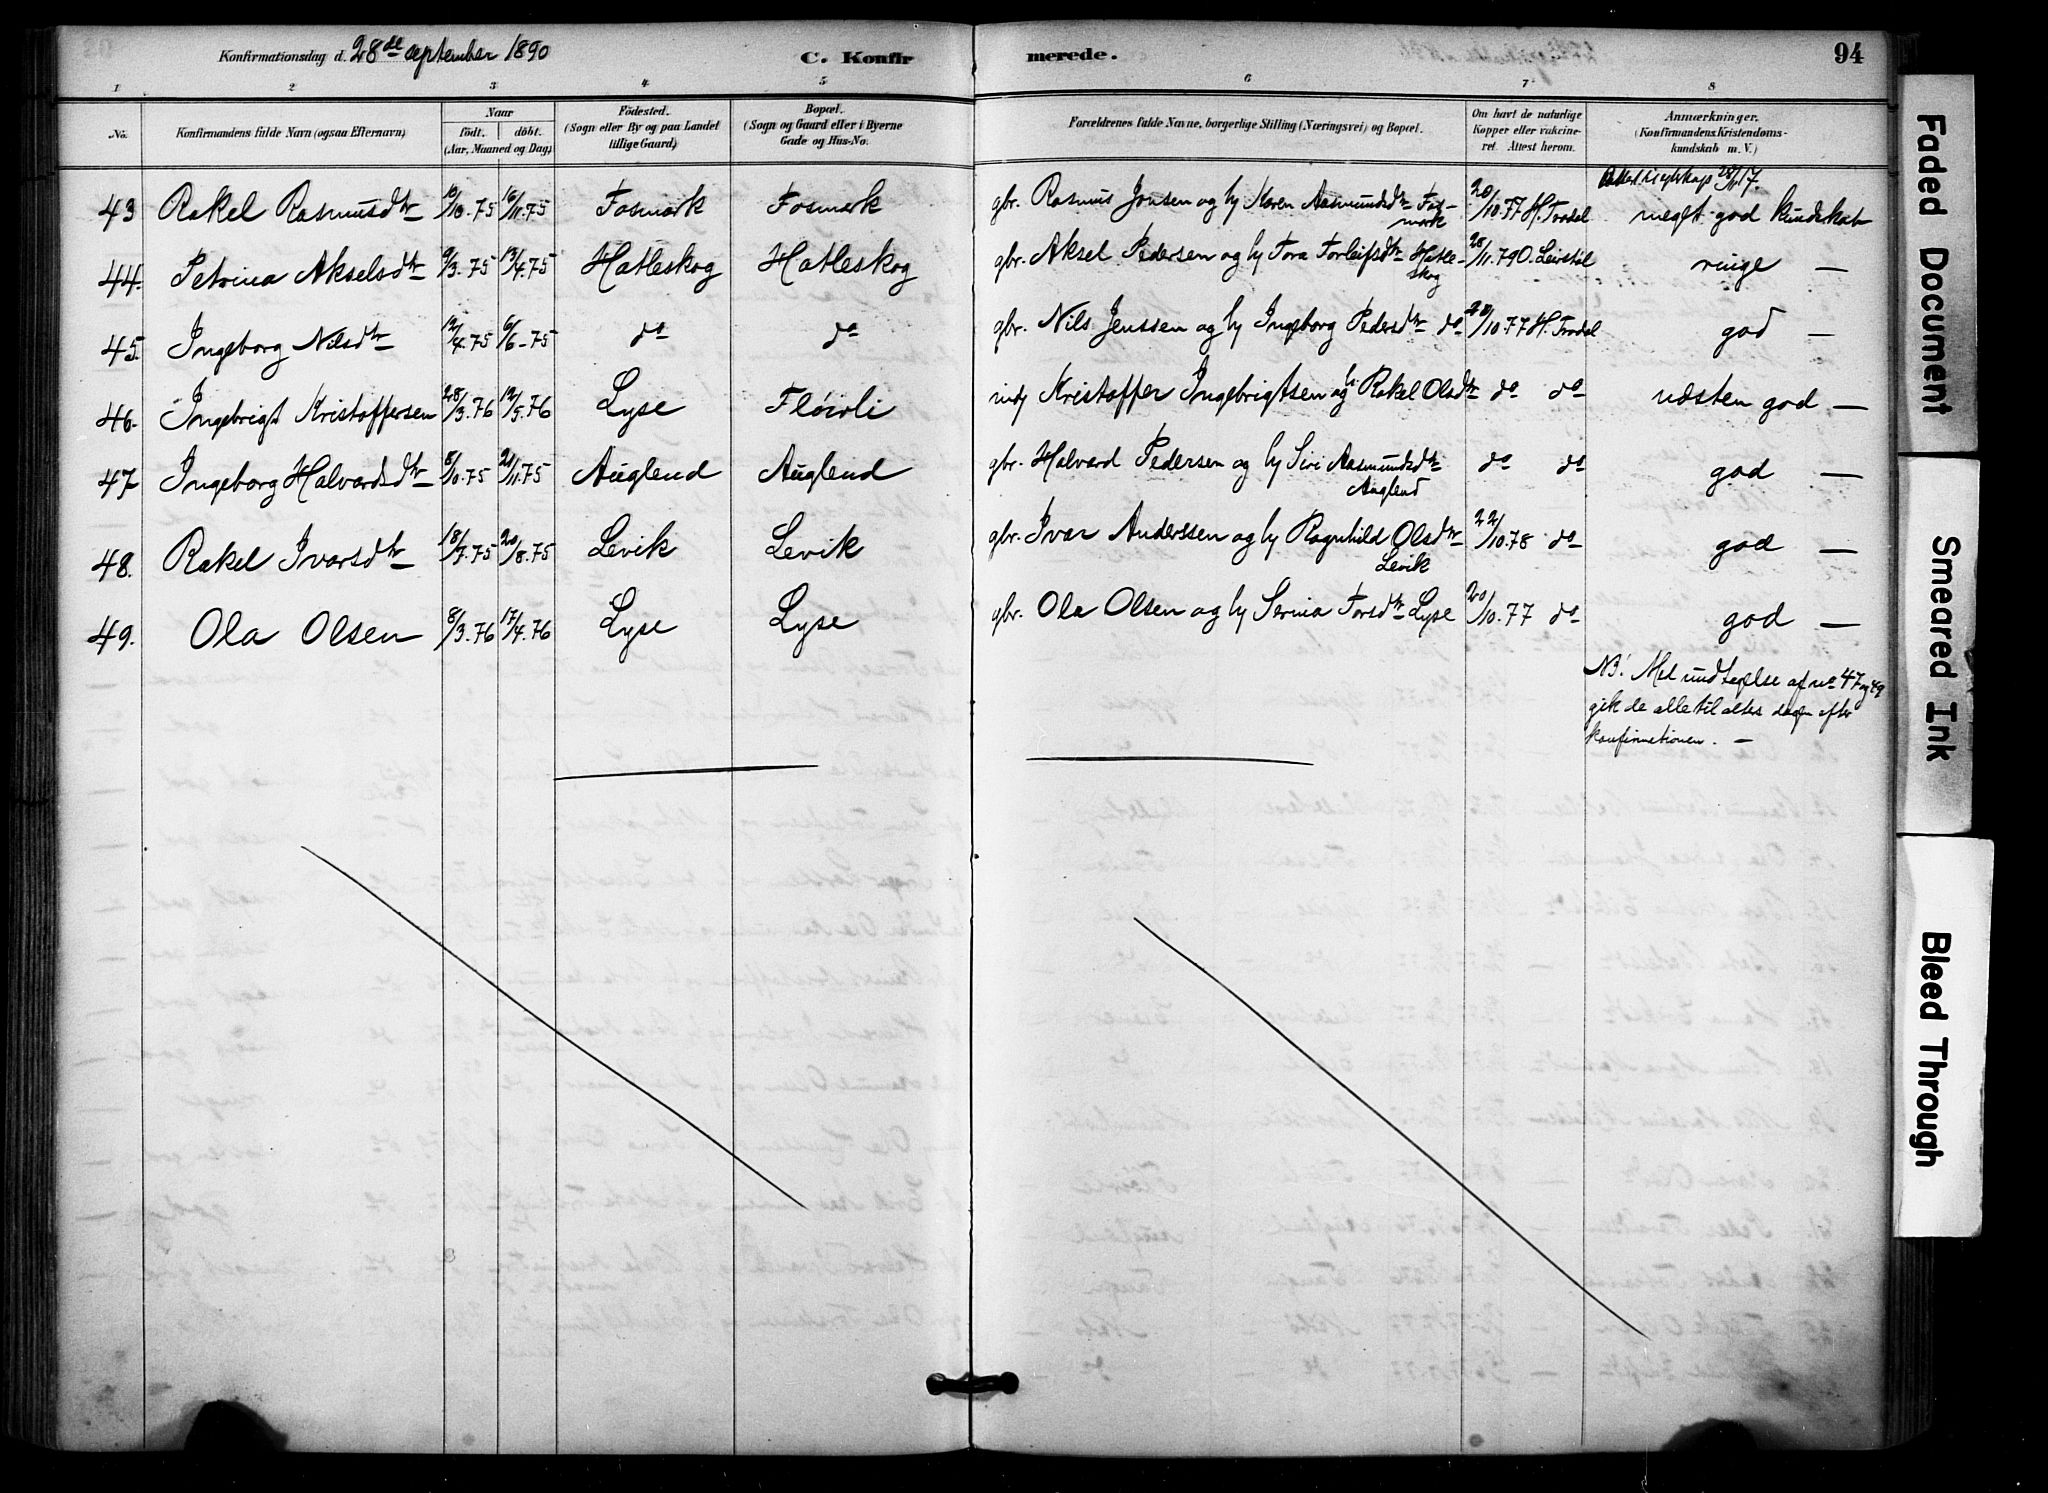 Konfirmationsdag d. 28de september 1890 C. Konfirmerede. 94
1 2 3 4 5 6 7 8
No. Konfirmandens fulde Navn (ogsaa Efternavn) Naar födt. döbt. (Aar, Maaned og Dag) Födested. (Sogn eller By og paa Landet tillige Gaard) Bopæl. (Sogn og Gaard eller i Byerne Gade og Hus-No. Forældrenes fulde Navne, borgerlige Stilling (Næringsvei) og Bopæl. Om havt de naturlige Kopper eller vakcineret. Attest herom. Anmærkninger. (Konfirmandens Kristendomskundskab m. V.)
28/11 17.
43 Rakel Rasmusdtr 10/10.75 16/11.75 Fosmark Fosmark gbr. Rasmus Jonsen og h Karen Aasmundsdtr Fosmark 20/10.77 H. Trodal meget god kundskab
44. Petrina Akselsdtr 9/3.75 13/4.75 Hatleskog Hatleskog gbr. Aksel Pedersen og h Tora Torleifsdtr Hatleskog 28/11.79 O. Leirstøl ringe —
45. Ingeborg Nilsdtr 12/4.75 6/6-75 do do gbr. Nils Jenssen og h Ingeborg Pedersdtr do 20/10.77 H. Trodal god —
46. Ingebrigt Kristoffersen 28/3.76 12/5.76 Lyse Fløirli indj Kristoffer Ingebrigtsen og h. Rakel Olsdtr do do næsten god —
47 Ingeborg Halvardsdtr 8/10.75 21/11.75 Auglend Auglend gbr. Halvard Pedersen og h Siri Aasmundsdtr Auglend do do god —
48. Rakel Ivarsdtr 18/7.75 20/8.75 Levik Levik gbr. Ivar Anderssen og h Ragnhild Olsdtr Levik 22/10.78 do god —
49. Ola Olsen 8/3.76 17/4.76 Lyse Lyse gbr. Ola Olsen og h Serina Torsdtr Lyse 20/10.77 do god —
NB! Med undtagelse af no 47 og 49
gik de alle til alters dagen efter
konfirmationen. —
Faded Document
Smeared Ink
Bleed Through